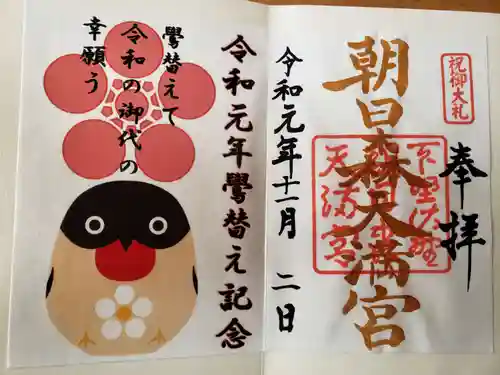 奉拝
祝御大礼
朝日森天満宮
下野佐野
天満宮
令和元年十一月二日
令和元年鷽替え記念
鷽替えて
令和の御代の
幸願う